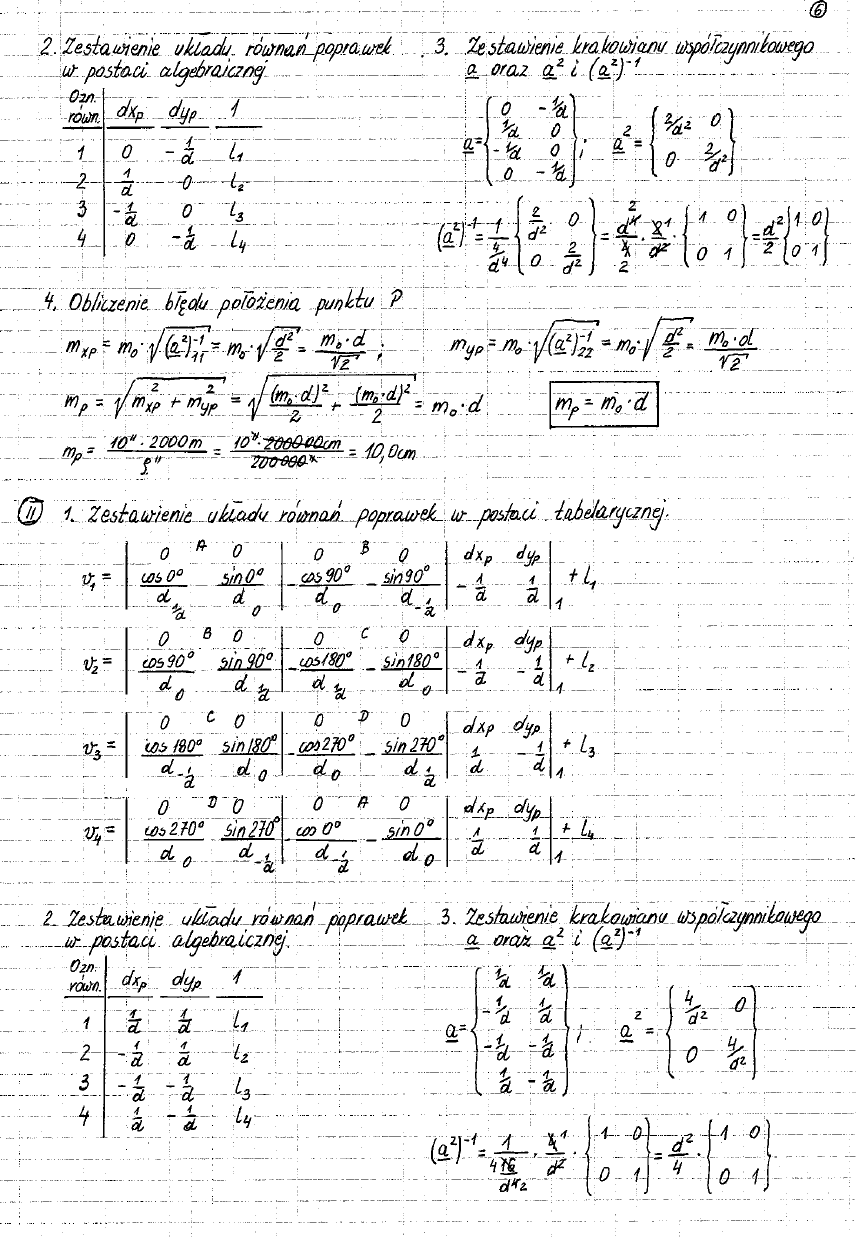 6
2. Zestawienie układu równań poprawek
w postaci algebraicznej
Ozn. równ. dxp dyp 1
1 0 -1/d l1
2 1/d 0 l2
3 -1/d 0 l3
4 0 -1/d l4
3. Zestawienie krakowianu współczynnikowego
a oraz a² i (a²)⁻¹
a = { 0 -1/d
1/d 0
-1/d 0
0 -1/d } ; a² = { 2/d² 0
0 2/d² }
(a²)⁻¹ = 1/(4/d⁴) { 2/d² 0
0 2/d² } = d⁴/4 · 2/d² · { 1 0
0 1 } = d²/2 { 1 0
0 1 }
4. Obliczenie błędu położenia punktu P
mxp = mo·√(a²)⁻¹11 = mo·√(d²/2) = mo·d/√2 ; myp = mo·√(a²)⁻¹22 = mo·√(d²/2) = mo·d/√2
mp = √(m²xp + m²yp) = √((mo·d)²/2 + (mo·d)²/2) = mo·d mp = mo·d
mp = 10"·2000m/ρ" = 10"·200000cm/200000" = 10,0cm
II 1. Zestawienie układu równań poprawek w postaci tabelarycznej.
v1 = | 0 A 0 | 0 B 0 | dxp dyp |
cos0°/d 1/d sin0°/d 0 | -cos90°/d 0 -sin90°/d -1/d | -1/d 1/d | 1 + l1
v2 = | 0 B 0 | 0 C 0 | dxp dyp |
cos90°/d 0 sin90°/d 1/d | -cos180°/d 1/d -sin180°/d 0 | -1/d -1/d | 1 + l2
v3 = | 0 C 0 | 0 D 0 | dxp dyp |
cos180°/d -1/d sin180°/d 0 | -cos270°/d 0 -sin270°/d 1/d | 1/d -1/d | 1 + l3
v4 = | 0 D 0 | 0 A 0 | dxp dyp |
cos270°/d 0 sin270°/d -1/d | -cos0°/d -1/d -sin0°/d 0 | 1/d 1/d | 1 + l4
2. Zestawienie układu równań poprawek
w postaci algebraicznej.
Ozn. równ. dxp dyp 1
1 1/d 1/d l1
2 -1/d 1/d l2
3 -1/d -1/d l3
4 1/d -1/d l4
3. Zestawienie krakowianu współczynnikowego
a oraz a² i (a²)⁻¹
a = { 1/d 1/d
-1/d 1/d
-1/d -1/d
1/d -1/d } ; a² = { 4/d² 0
0 4/d² }
(a²)⁻¹ = 1/(16/d⁴) · 4/d² · { 1 0
0 1 } = d²/4 · { 1 0
0 1 }